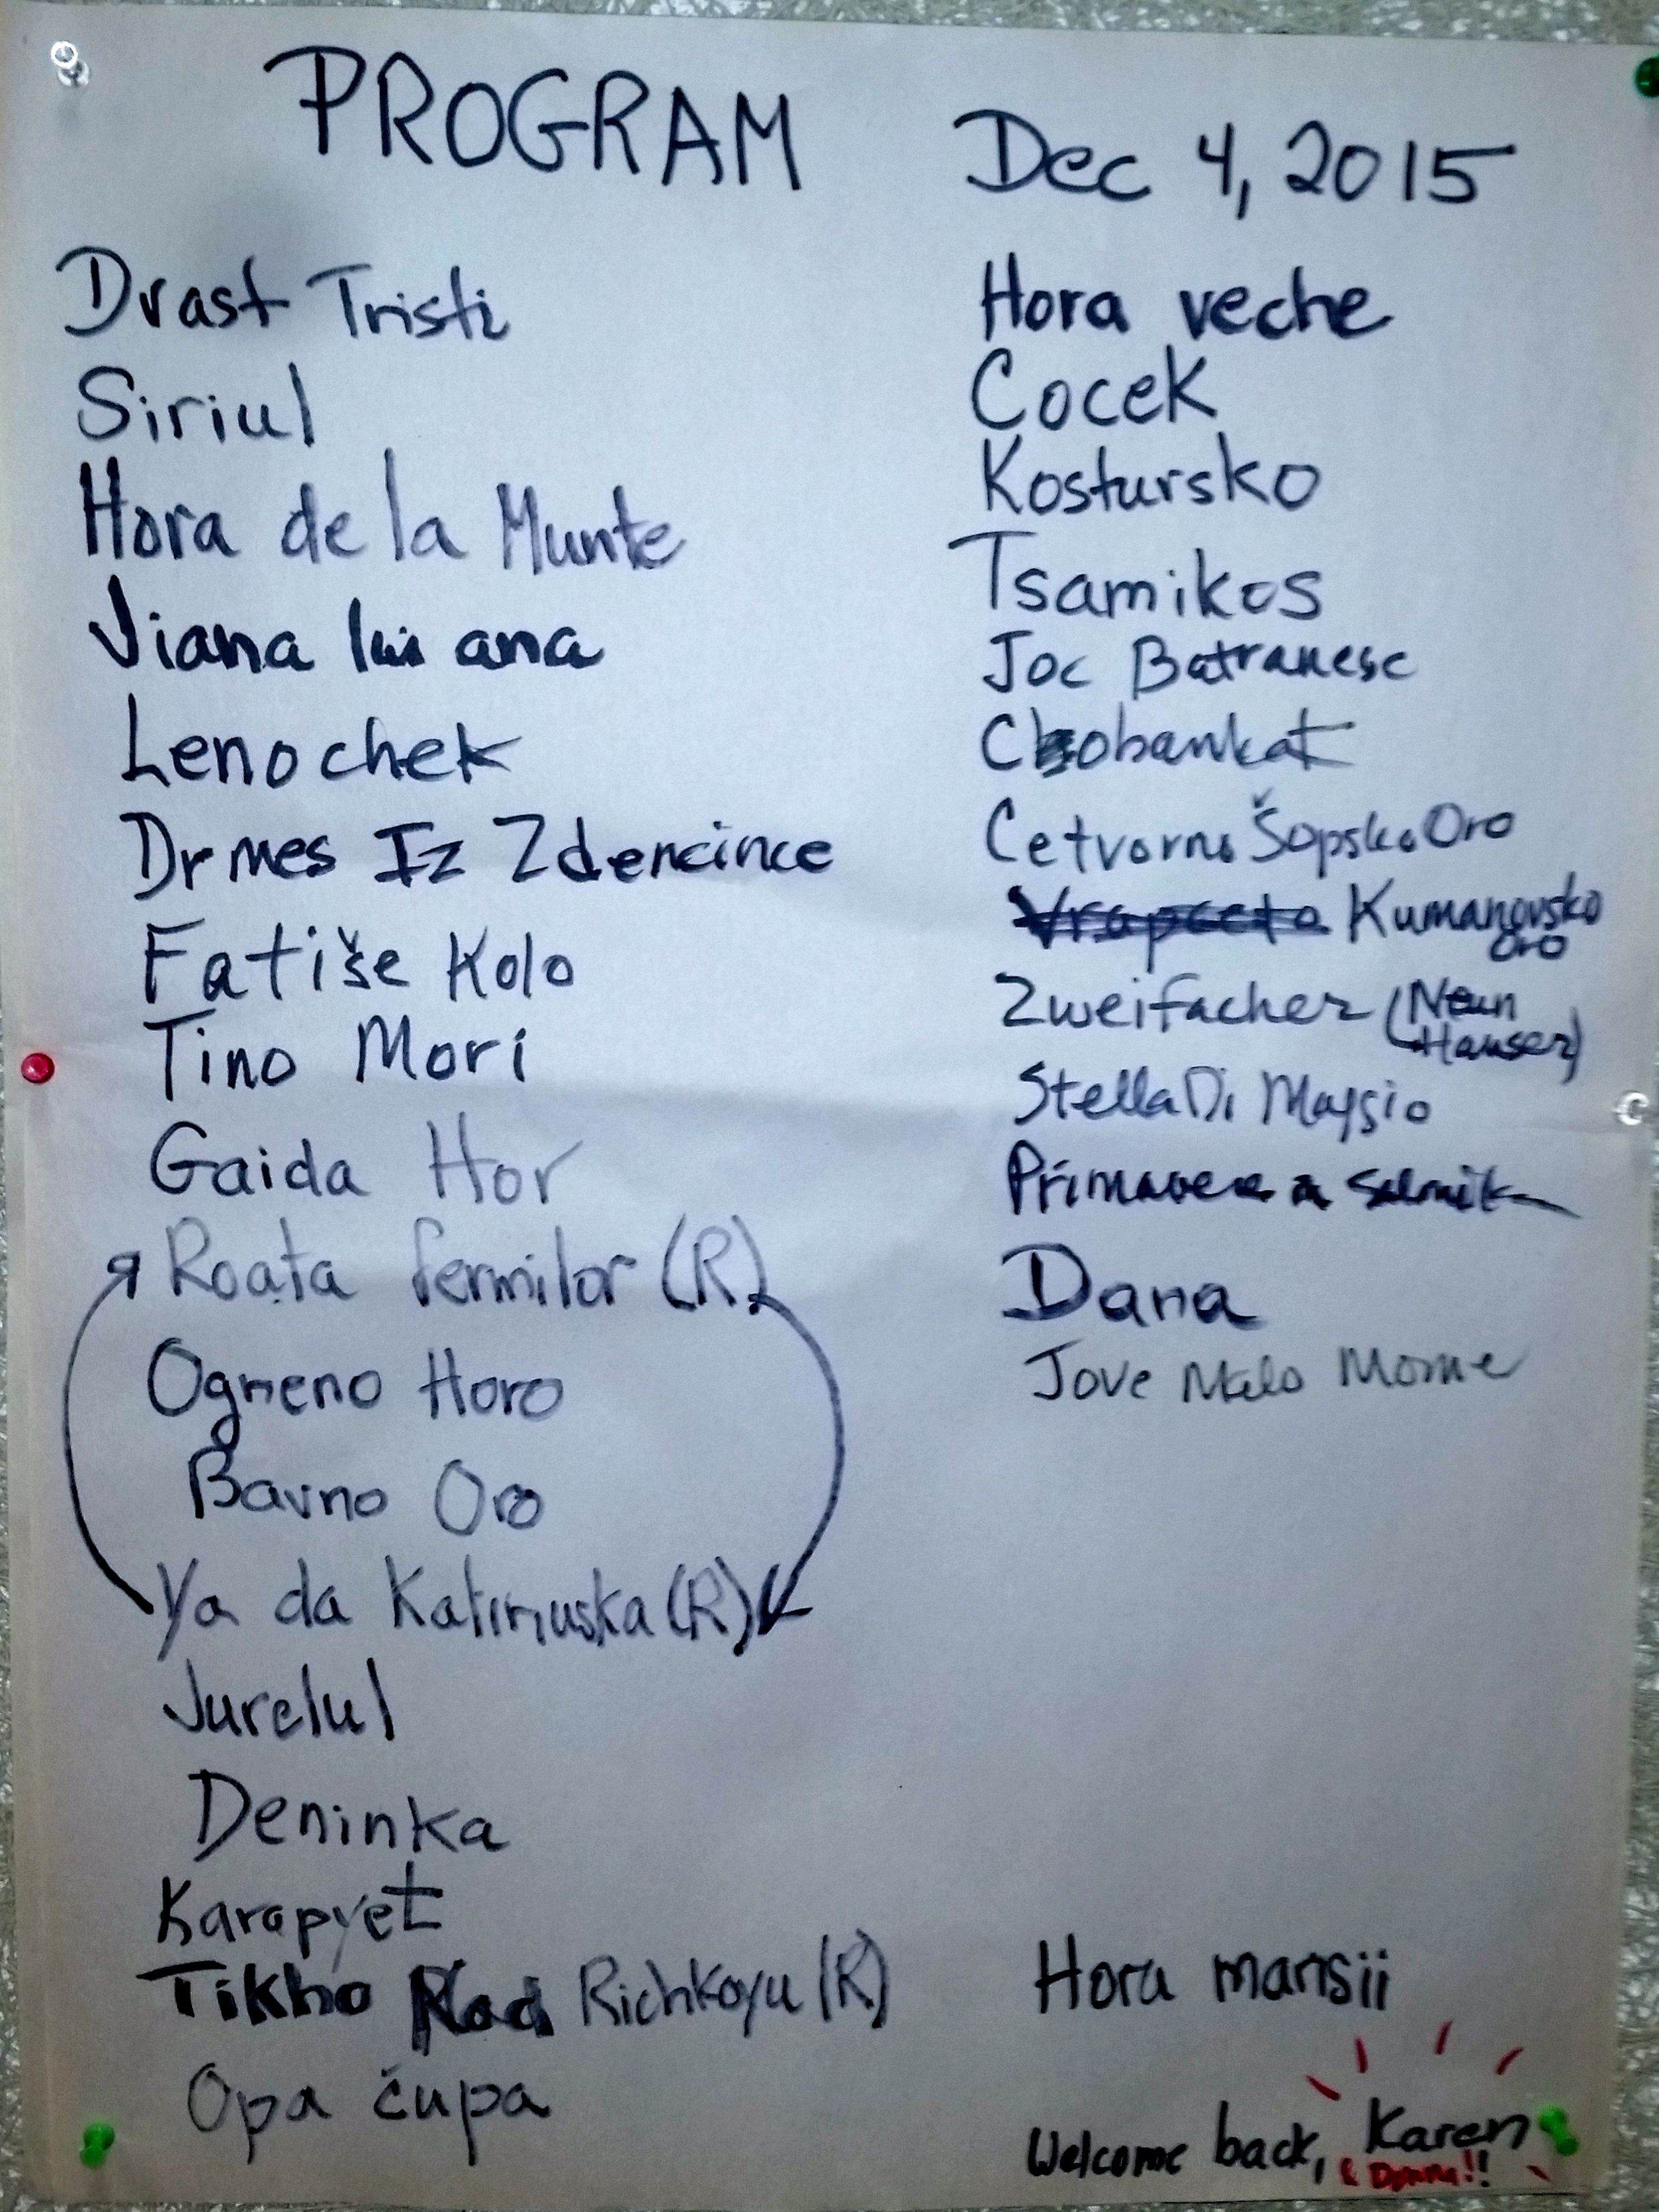 PROGRAM Dec 4, 2015
Drast Tristi
Siriul
Hora de la Munte
Jiana lui ana
Lenochek
Drmes Iz Zdencince
Fatiše Kolo
Tino Mori
Gaida Hor
Roata fermilor (R)
Ogneno Horo
Bavno Oro
Ya da Kalinuska (R)
Jurelul
Deninka
Karapyet
Tikho Nad Richkoyu (R)
Opa čupa
Hora veche
Cocek
Kostursko
Tsamikos
Joc Batranesc
Chobankat
Cetvorno Šopsko Oro
Vrapceto Kumanovsko
Oro
Zweifacher (Neun
Hauser)
Stella Di Maggio
Primavera
Dana
Jove Malo Mome
Hora mansii
Welcome back, Karen
& Donna!!